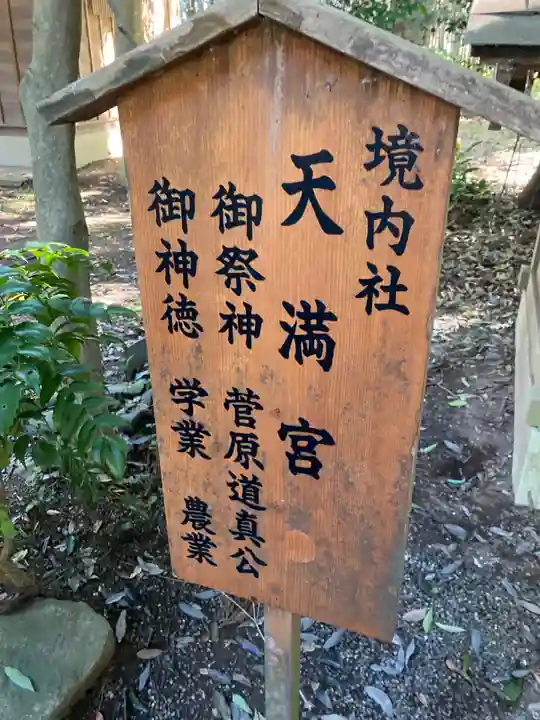 境内社
天満宮
御祭神 菅原道真公
御神徳 学業 農業